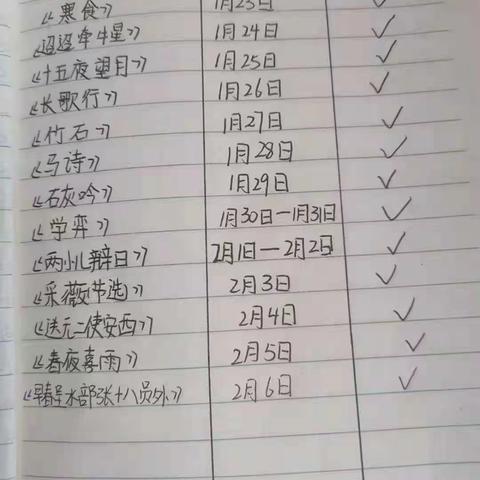 《寒食》 1月23日 ✓
《迢迢牵牛星》 1月24日 ✓
《十五夜望月》 1月25日 ✓
《长歌行》 1月26日 ✓
《竹石》 1月27日 ✓
《马诗》 1月28日 ✓
《石灰吟》 1月29日 ✓
《学弈》 1月30日—1月31日 ✓
《两小儿辩日》 2月1日—2月2日 ✓
《采薇节选》 2月3日 ✓
《送元二使安西》 2月4日 ✓
《春夜喜雨》 2月5日 ✓
《早春呈水部张十八员外》 2月6日 ✓